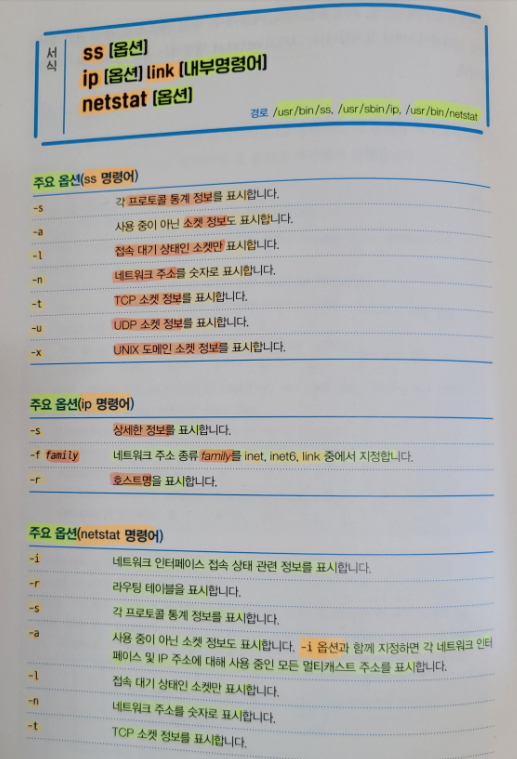 서식
ss [옵션]
ip [옵션] link [내부명령어]
netstat [옵션]
경로 /usr/bin/ss, /usr/sbin/ip, /usr/bin/netstat
주요 옵션(ss 명령어)
-s 각 프로토콜 통계 정보를 표시합니다.
-a 사용 중이 아닌 소켓 정보도 표시합니다.
-l 접속 대기 상태인 소켓만 표시합니다.
-n 네트워크 주소를 숫자로 표시합니다.
-t TCP 소켓 정보를 표시합니다.
-u UDP 소켓 정보를 표시합니다.
-x UNIX 도메인 소켓 정보를 표시합니다.
주요 옵션(ip 명령어)
-s 상세한 정보를 표시합니다.
-f family 네트워크 주소 종류 family를 inet, inet6, link 중에서 지정합니다.
-r 호스트명을 표시합니다.
주요 옵션(netstat 명령어)
-i 네트워크 인터페이스 접속 상태 관련 정보를 표시합니다.
-r 라우팅 테이블을 표시합니다.
-s 각 프로토콜 통계 정보를 표시합니다.
-a 사용 중이 아닌 소켓 정보도 표시합니다. -i 옵션과 함께 지정하면 각 네트워크 인터
페이스 및 IP 주소에 대해 사용 중인 모든 멀티캐스트 주소를 표시합니다.
-l 접속 대기 상태인 소켓만 표시합니다.
-n 네트워크 주소를 숫자로 표시합니다.
-t TCP 소켓 정보를 표시합니다.